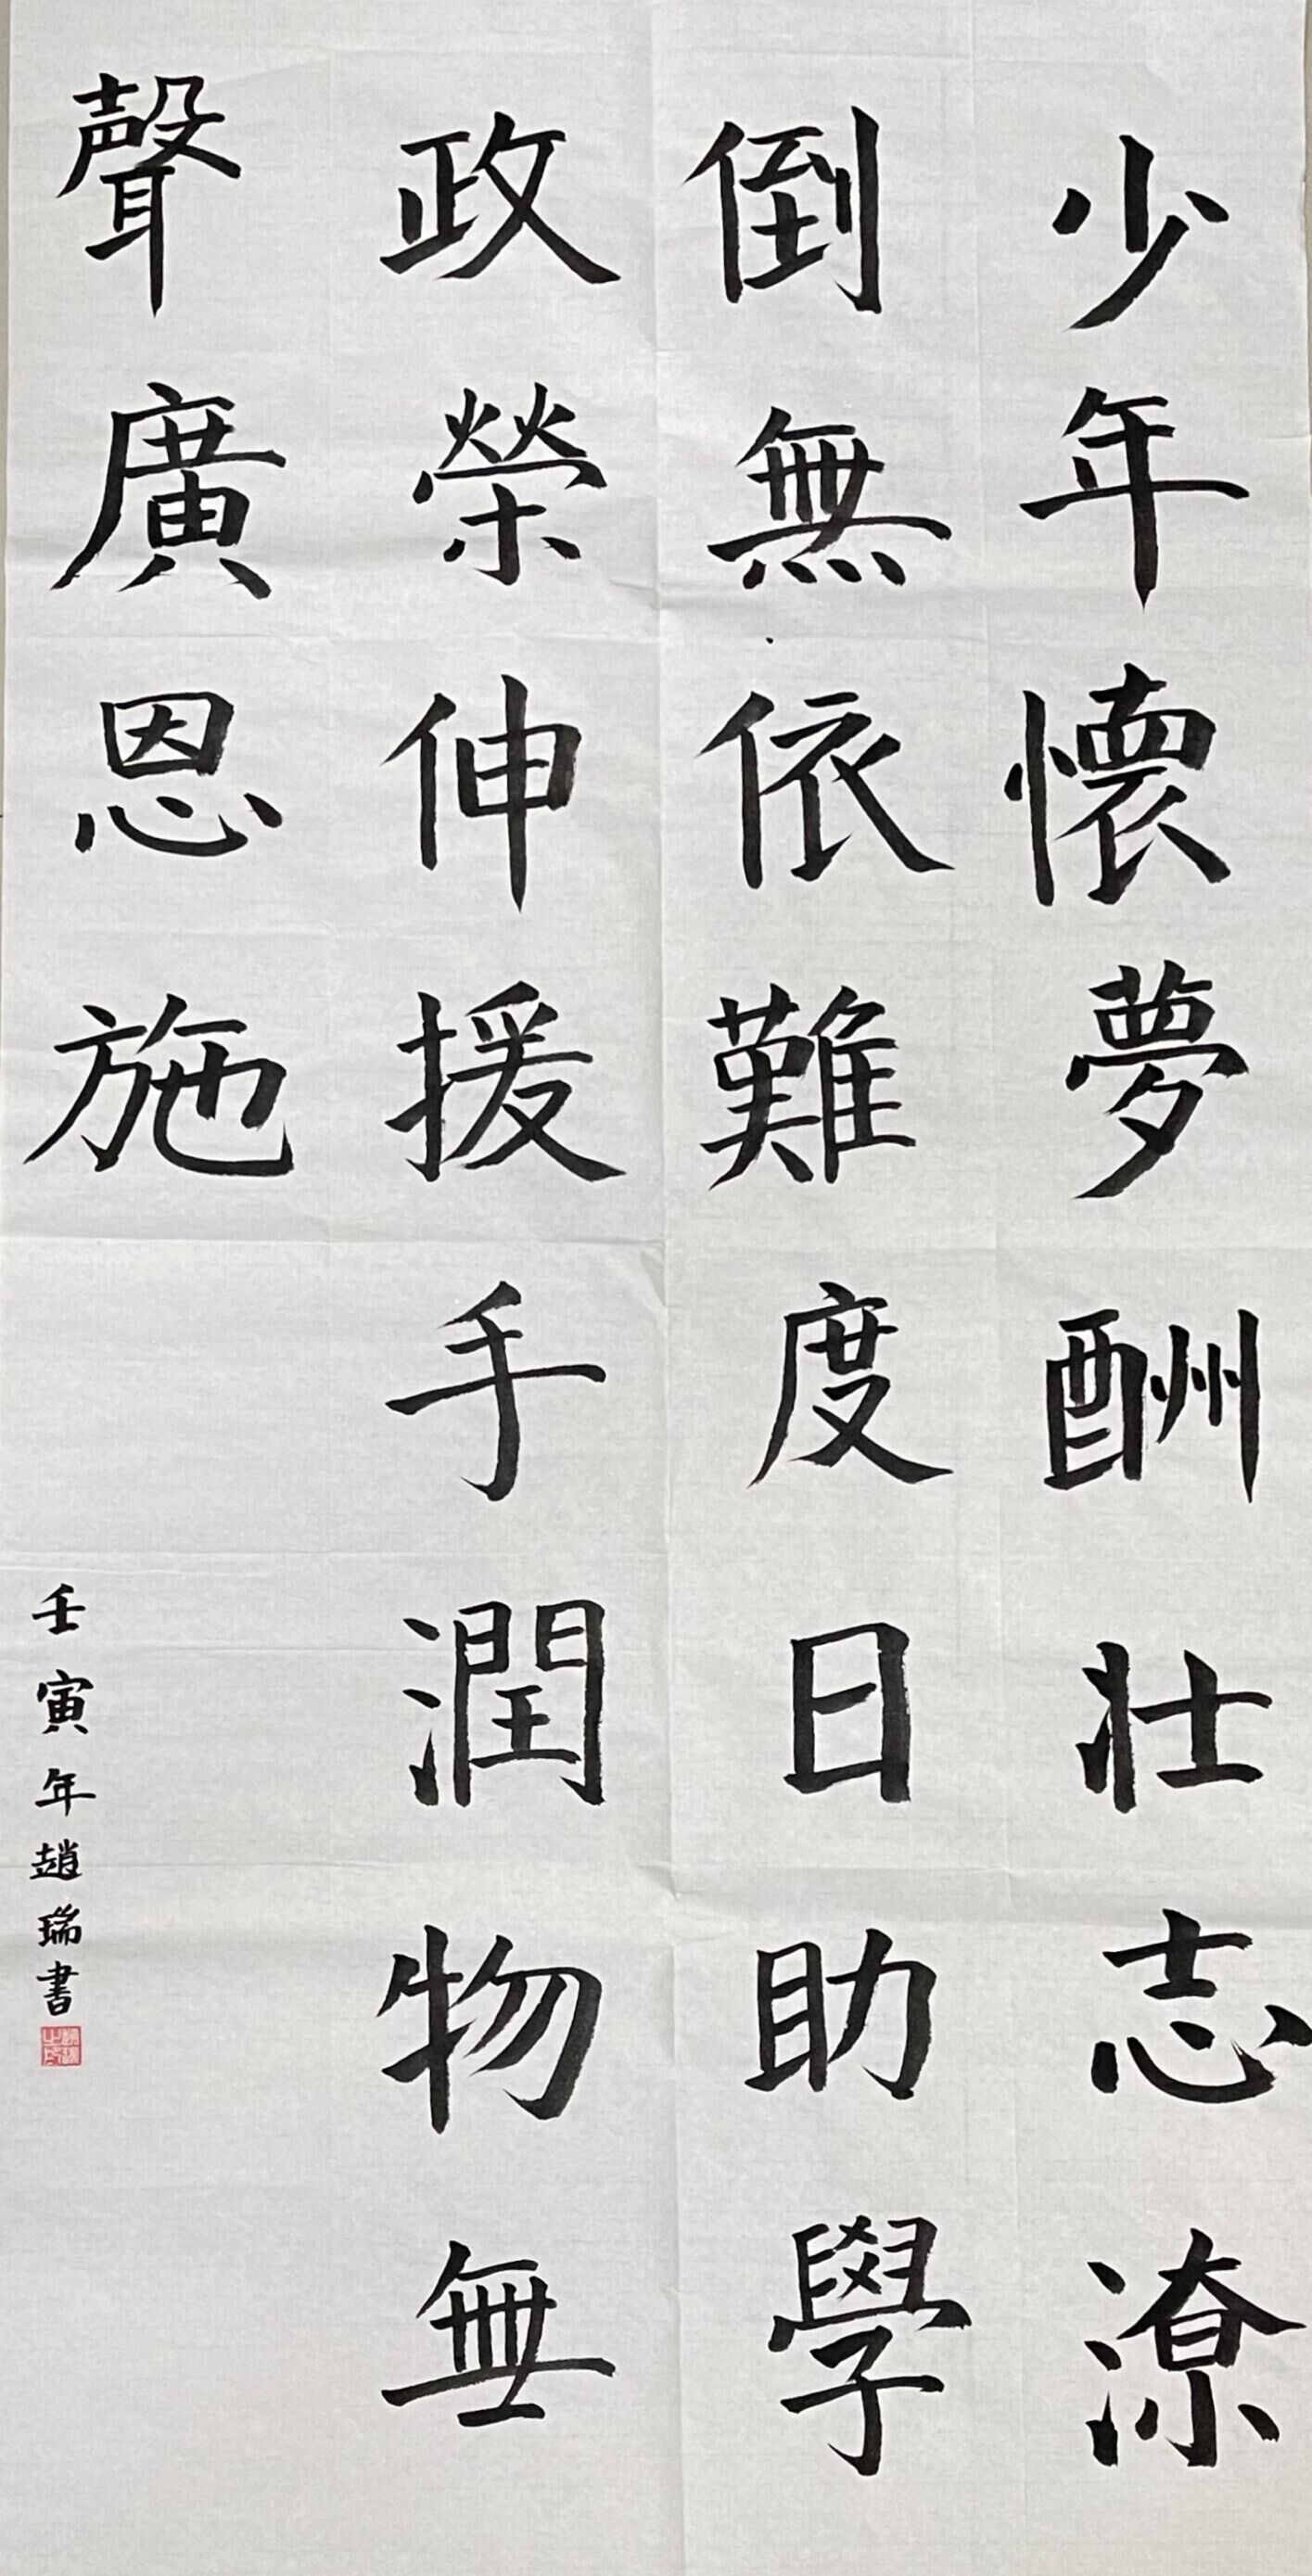 少年懷夢酬壯志潦
倒無依難度日助學
政榮伸援手潤物無
聲廣恩施
壬寅年趙瑞書